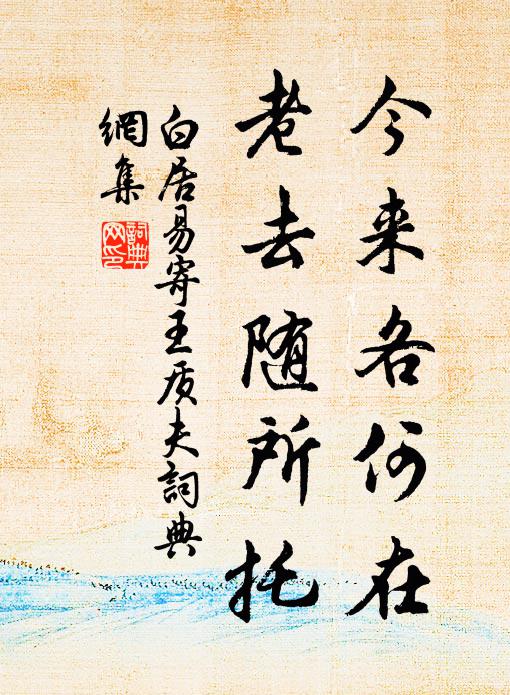 今来各何在
老去随所托
白居易寄王质夫詞典
網集
詞典
网印